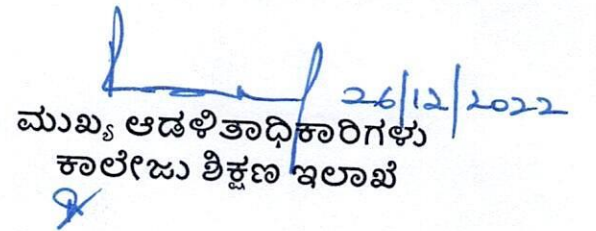 26/12/2022
ಮುಖ್ಯ ಆಡಳಿತಾಧಿಕಾರಿಗಳು
ಕಾಲೇಜು ಶಿಕ್ಷಣ ಇಲಾಖೆ